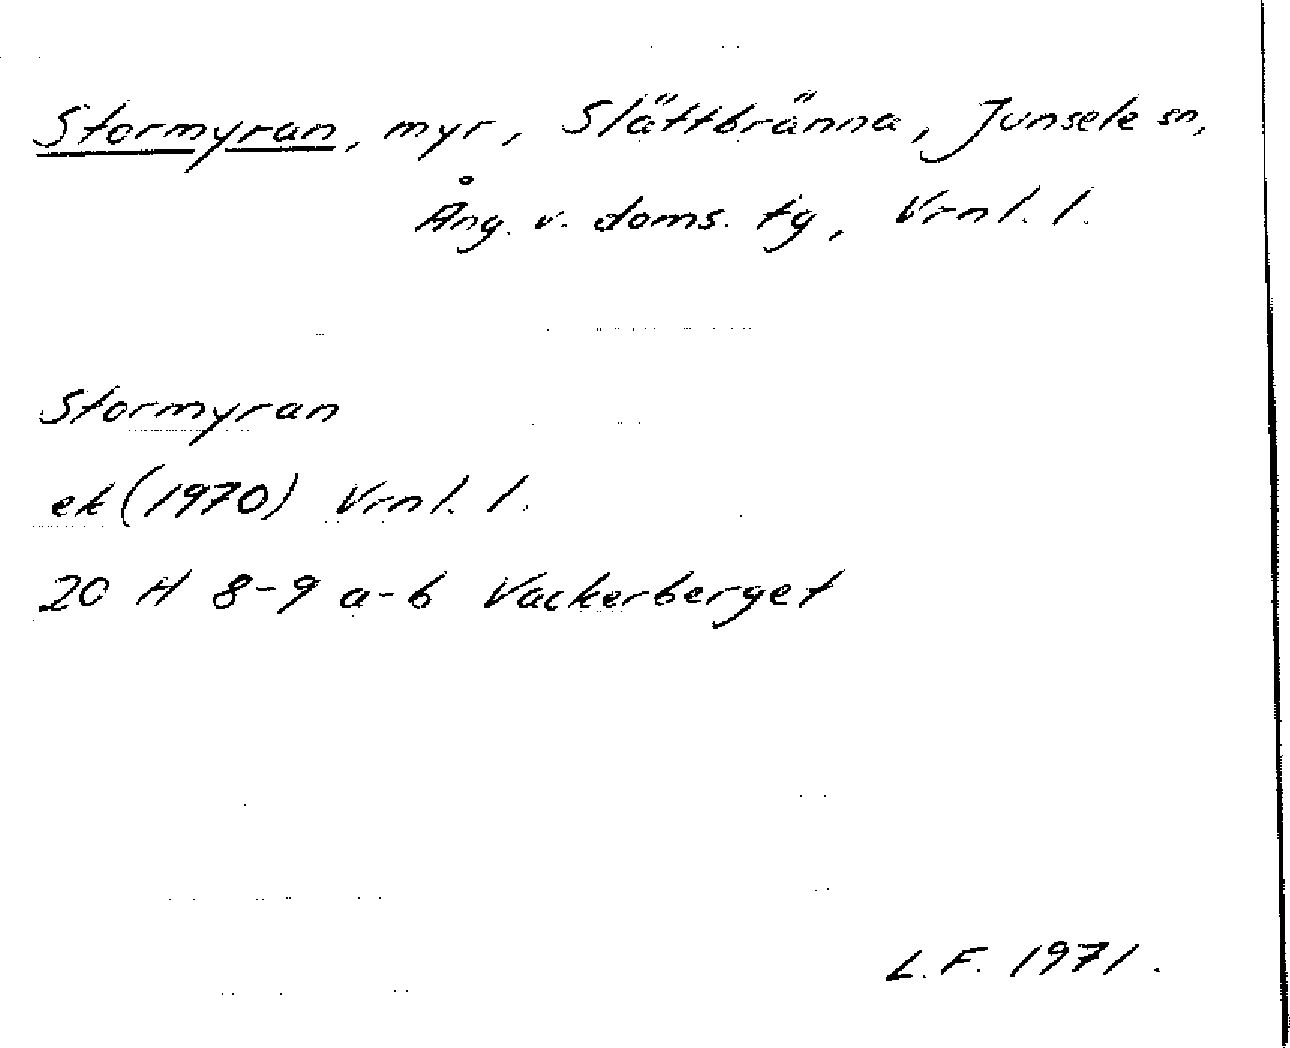 Stormyran, myr, Slättbränna, Junsele sn,
Ång. v. doms. tg, Vrnl. l.
Stormyran
ek (1970) Vrnl. l.
20 H 8-9 a-b Vackerberget
L.F. 1971.